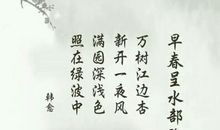 早春呈水部
万树江边杏
新开一夜风
满园深浅色
照在绿波中
韩愈